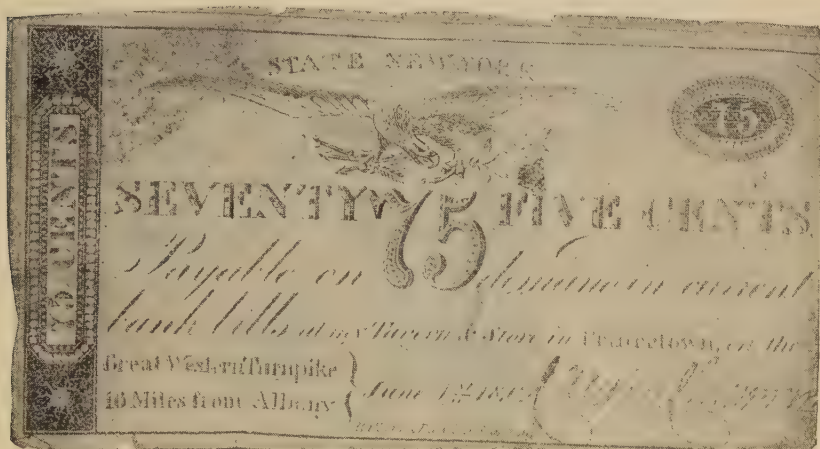 STATE NEW YORK
75
75 CENTS
SEVENTY 75 FIVE CENTS
Payable on demand in current
bank bills at my Tavern & Store in Princetown, on the
Great Western Turnpike
16 Miles from Albany
June